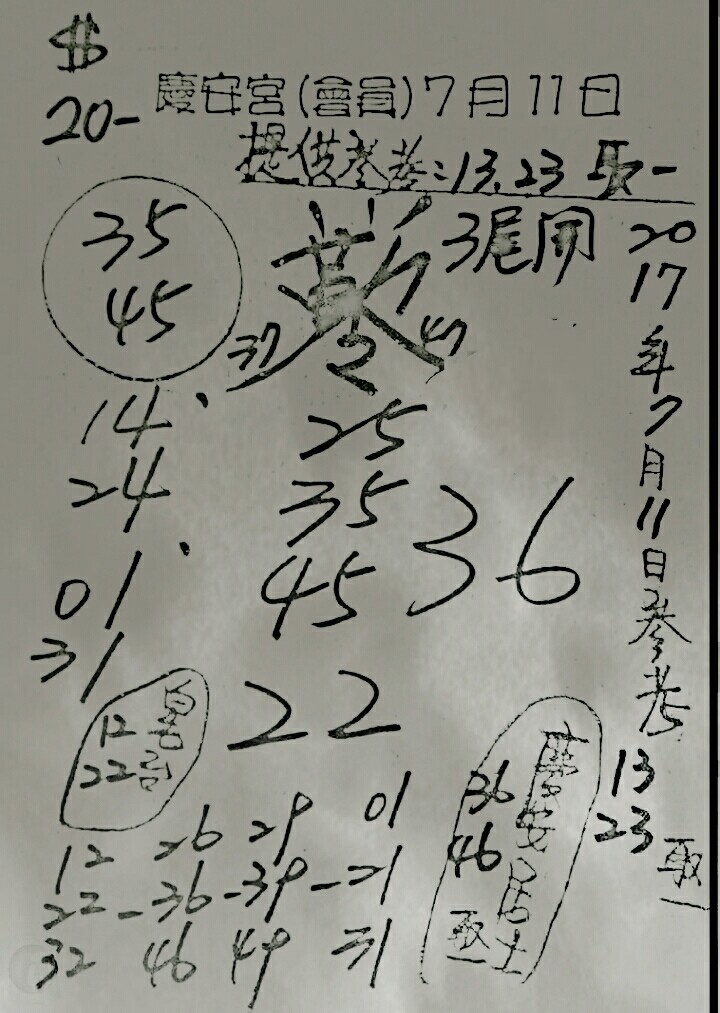 $
20-
慶安宮(會員)7月11日
提供参考:13.23 取一
35
45
3尾開
37
2
47
2017年7月11日参考
13
23
取一
14
24
01
31
25
35
45
36
22
12
22
慶安居士
36
46
取一
12 26 29 01
22-36-39-21
32 46 49 31